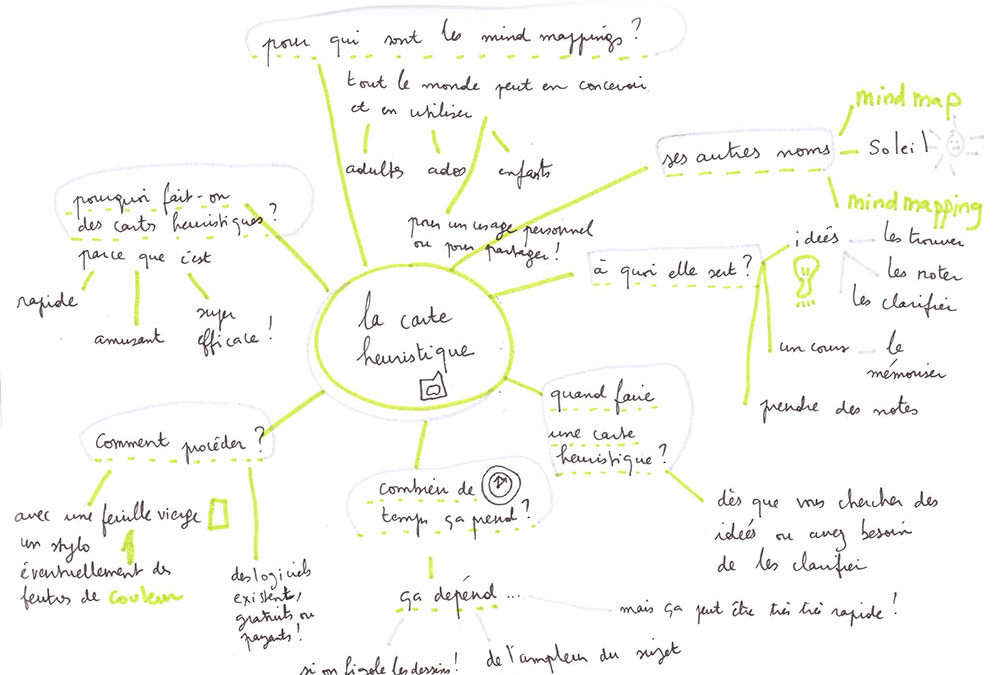 pour qui sont les mind mappings ?
tout le monde peut en concevoir
et en utiliser
adultes ados enfants
pour un usage personnel
ou pour partager !
ses autres noms
mind map
Soleil
mind mapping
à quoi elle sert ?
idées
les trouver
les noter
les clarifier
un cours
le
mémoriser
prendre des notes
quand faire
une carte
heuristique ?
dès que vous chercher des
idées ou avez besoin
de les clarifier
combien de
temps ça prend ?
ça dépend ...
mais ça peut être très très rapide !
de l'ampleur du sujet
si on figole les dessins !
Comment procéder ?
avec une feuille vierge
un stylo
éventuellement des
feutres de couleur
des logiciels
existent,
gratuits ou
payants !
pourquoi fait-on
des cartes heuristiques ?
parce que c'est
rapide
amusant
super
efficace !
la carte
heuristique